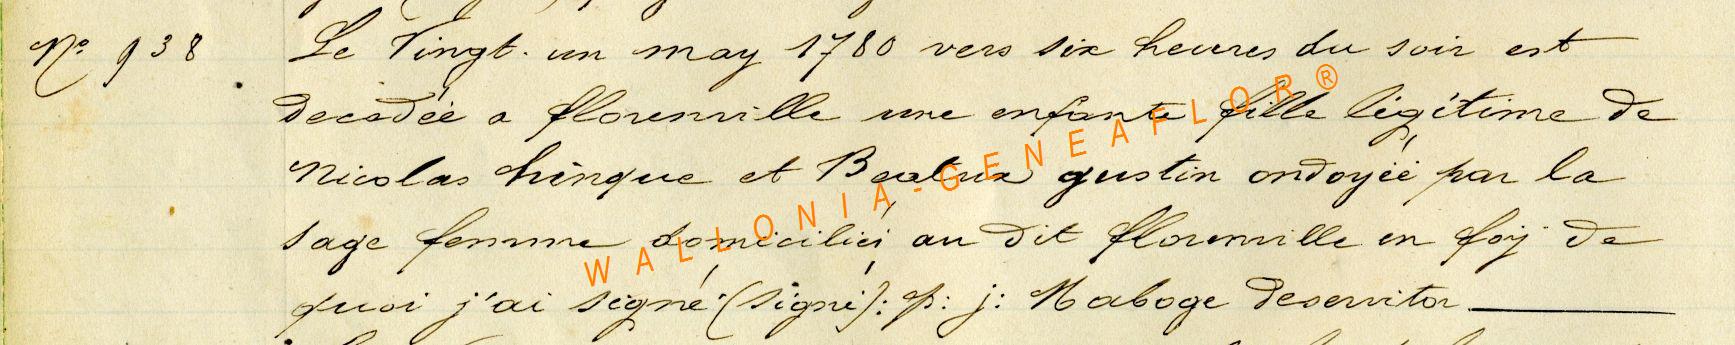 N° 938 Le Vingt-un may 1780 vers six heures du soir est
decedée a florenville une enfante fille légitime de
Nicolas hinque et Beatrix gustin ondoyée par la
sage femme domiciliéi au dit florenville en foij de
quoi j'ai signé (signé): p: j: Maboge deservitor
WALLONIA-GENEAFLOR®